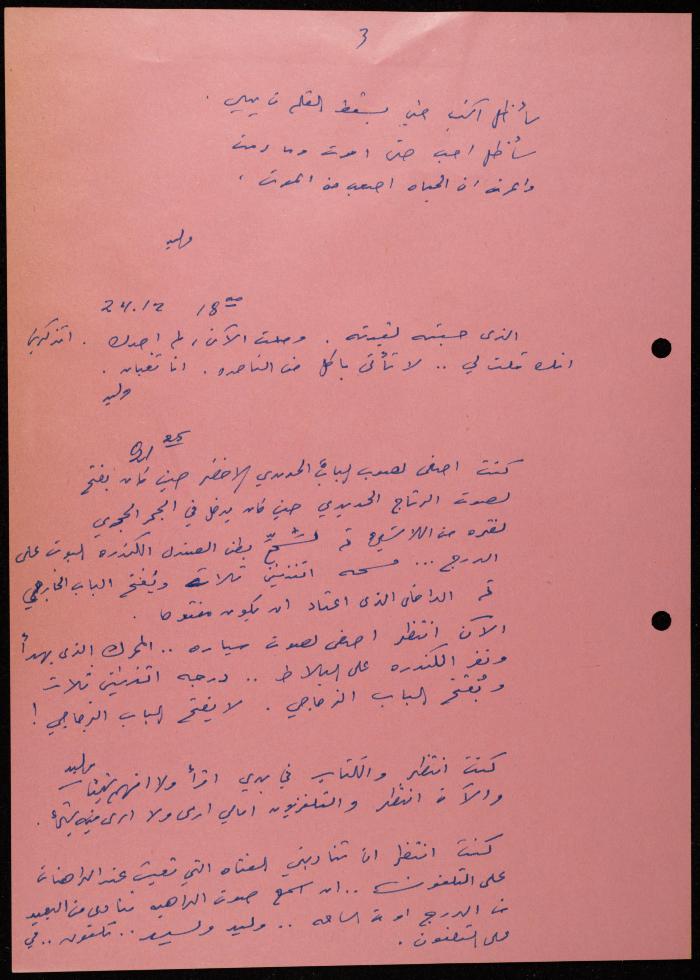 3
سأظل اكتب حتى يسقط القلم من يدي .
سأظل احب حتى اموت وما دمت
واعرف ان الحياه اصعب من الموت .
وليد
24.12 18ºº
الذي حسبته لقيته . وصلت الآن ، لم اجدك . اتذكرين
انك قلت لي .. لا تأتي باكل من الناصره . انا تعبان .
وليد
21
كنت اصغي لصوت الباب الحديدي الاخضر حين كان يفتح
لصوت الرتاج الحديدي حين كان يدخل في الحجر
نقره من اللاشيء ثم بطن الصندل الكندره البوت على
الدرج ... فسحه اثنتين ثلاث ويُفتح الباب الخارجي
ثم الداخلي الذي اعتاد ان يكون مفتوحا .
الآن انتظر اصغي لصوت سياره .. المحرك الذي يهدأ
ونقر الكندره على البلاط .. درجه اثنتين ثلاث
ويُفتح الباب الزجاجي . لا يفتح الباب الزجاجي !
وليد
كنت انتظر والكتاب في يدي اقرأ ولا افهم شيئا
والآن انتظر والتلفزيون امامي ارى ولا ارى فيه شيئا .
كنت انتظر ان تناديني الفتاه التي تعيش عند الراهبات
على التلفون .. ان اسمع صوت الراهبه تنادي من البعيد
من الدرج او الساحه .. وليد وليد .. تلفون .. في
على التلفون .